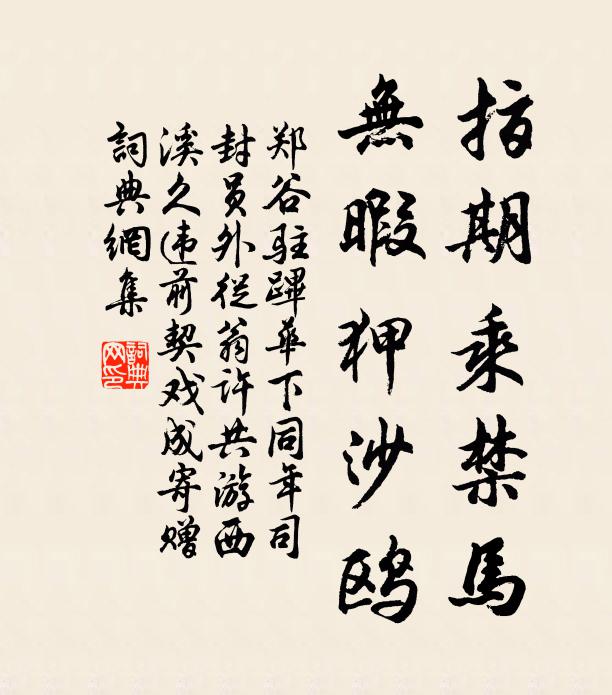 指期乘禁馬
無暇狎沙鸥
郑谷驻蹕華下同年司
封员外從翁许共游西
溪久违前契戏成寄赠
詞典網集
詞典
网印